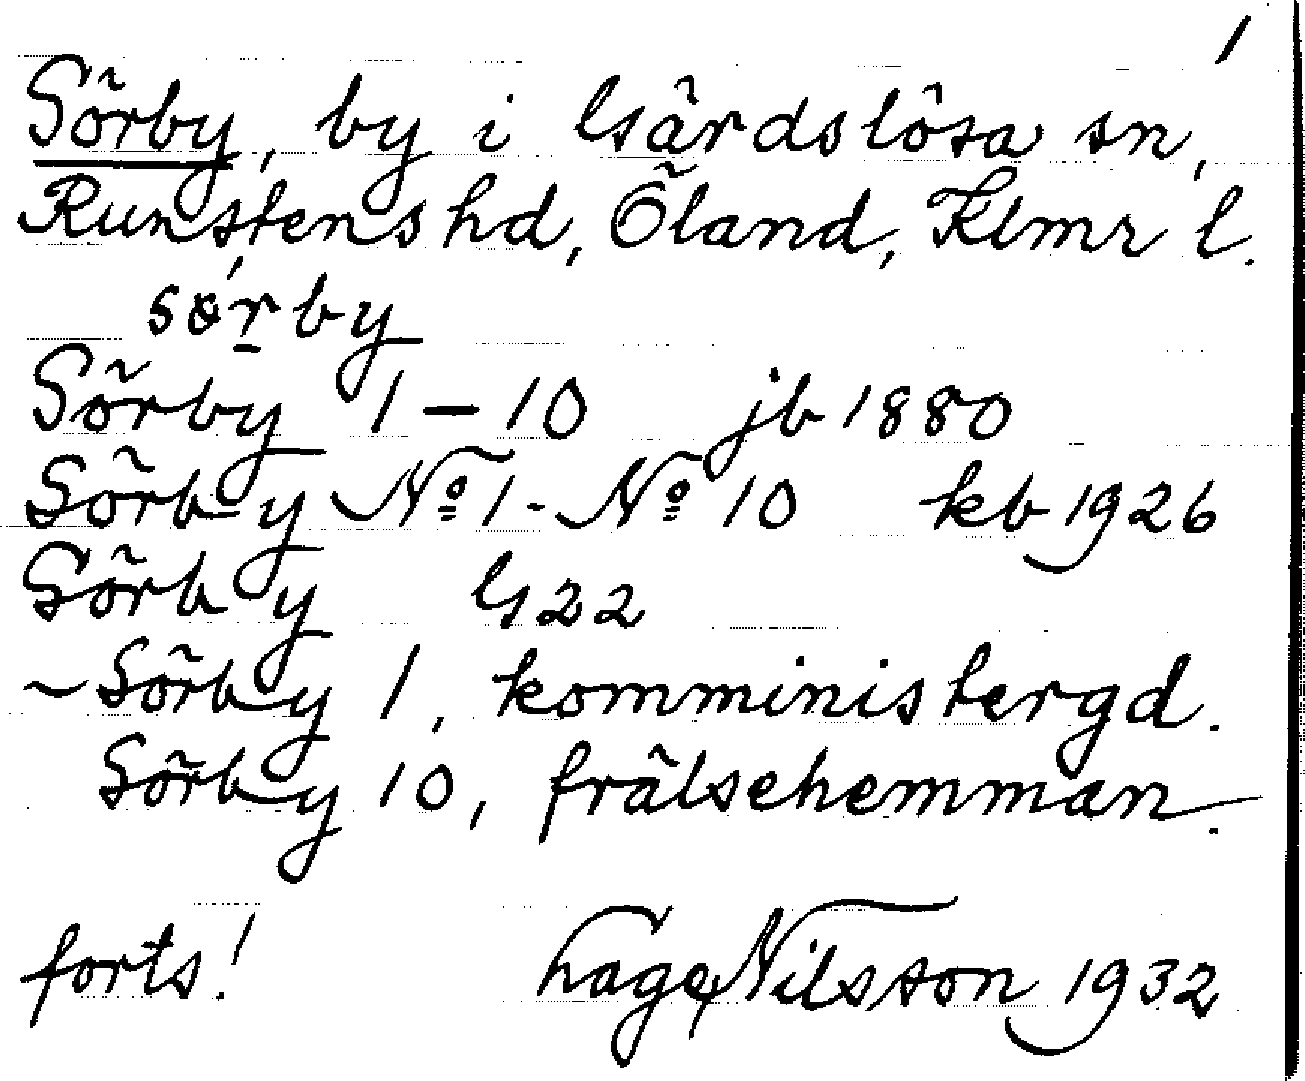 1
Sörby, by i Gärdslösa sn,
Runstens hd, Öland, Klmr l.
sørby
Sörby 1-10 jb 1880
Sörby No 1 - No 10 kb 1926
Sörby G22
~ Sörby 1, komministergd.
Sörby 10, frälsehemman.
forts! Hage Nilsson 1932